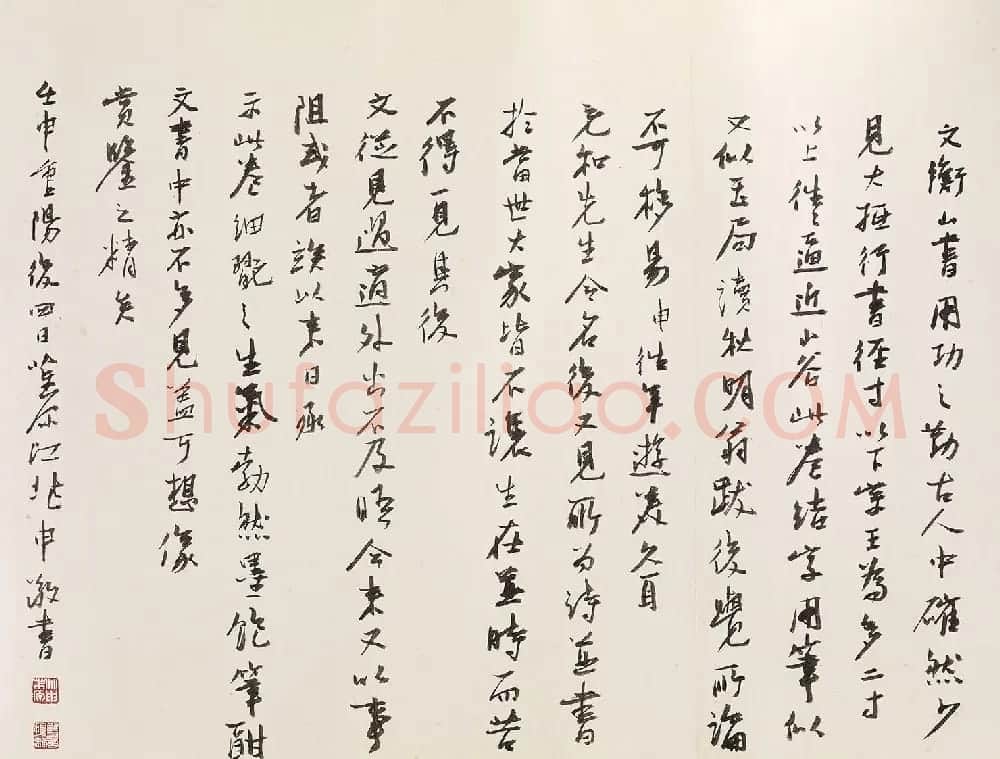 文衡山書用功之勤古人中確然少
見大抵行書徑寸以下學王為多二寸
以上往往逼近山谷此卷結字用筆似
又似玉局讀秋明翁跋後覺所論
不可移易申往年遊美久耳
充和先生令名後又見所為詩並書
於當世大家皆不讓生在並時而苦
不得一見其後
文從見過適外出不及晤今來又以事
阻或者誤以來日承
示此卷細翫之生氣勃然墨飽筆酣
文書中亦不多見蓋可想像
賞鑒之精矣
壬申重陽後四日蘭介江兆申敬書
Shufaziliao.COM